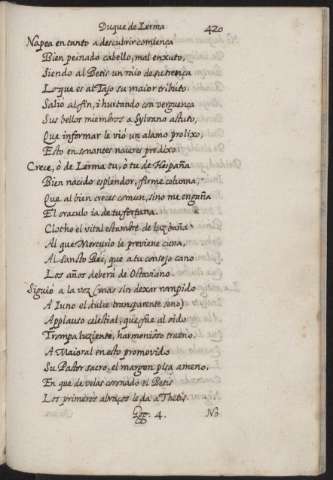 Duque de Lerma 420
Napea en tanto a descubrir comiença
Bien peinado cabello, mal enxuto,
Siendo al Betis un raio de su trença
Lo que es al Tajo su maior tributo.
Salio al fin, i hurtando con verguença
Sus bellos miembros a Sylvano astuto,
Que infòrmar le viò un alamo prolixo,
Esto en sonantes nacares predixo.
Crece, ò de Lerma tu, ò tu de Hespaña
Bien nacido esplendor, firme coluna,
Que al bien creces comun, sino me engaña
El oraculo ia de tu fortuna.
Clotho el vital estambre de luz baña
Al que Mercurio le previene cuna,
Al Sancto Rei, que a tu consejo cano
Los años deberà de Octaviano.
Siguiò a la voz (mas sin dexar rompido
A Iuno el dulce transparente seno)
Applauso celestial, que fue al oido
Trompa luziente, harmonioso trueno.
A Maioral en esto promovido
Su Pastor sacro, el margen pisa ameno,
En que de velas coronado el Betis
Los primeros abraços le da a Thetis.
4. No